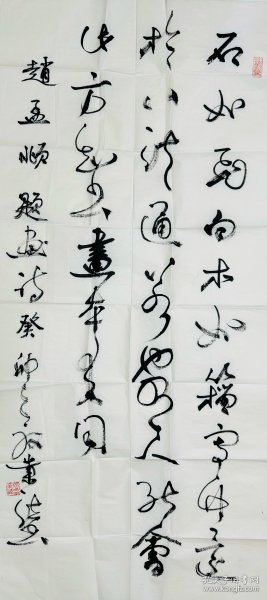 石如飛白木如籀寫竹還
於八法通若也有人能會
此方知书畫本来同
趙孟頫題畫詩癸卯之